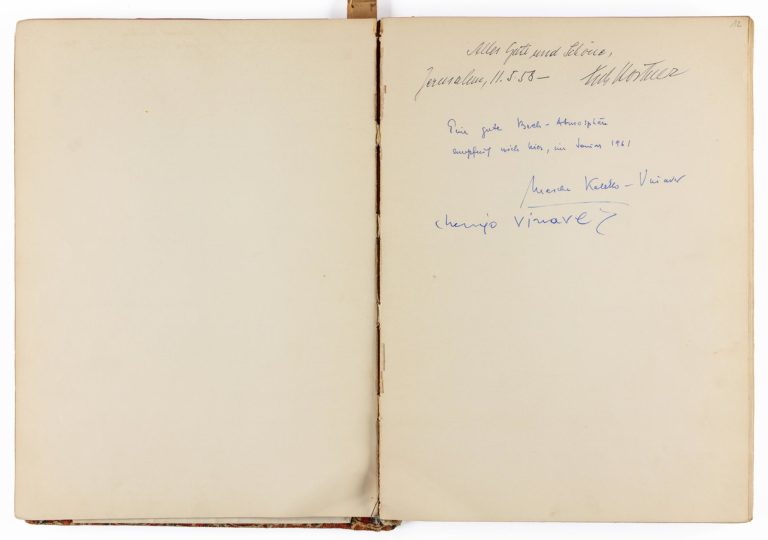 12
Alles Gute und Schöne,
Jerusalem, 11.5.58 –
Eine gute Buch-Atmosphäre
empfing mich hier, im Januar 1961
Mascha Kaléko-Vinaver
Chemjo Vinaver